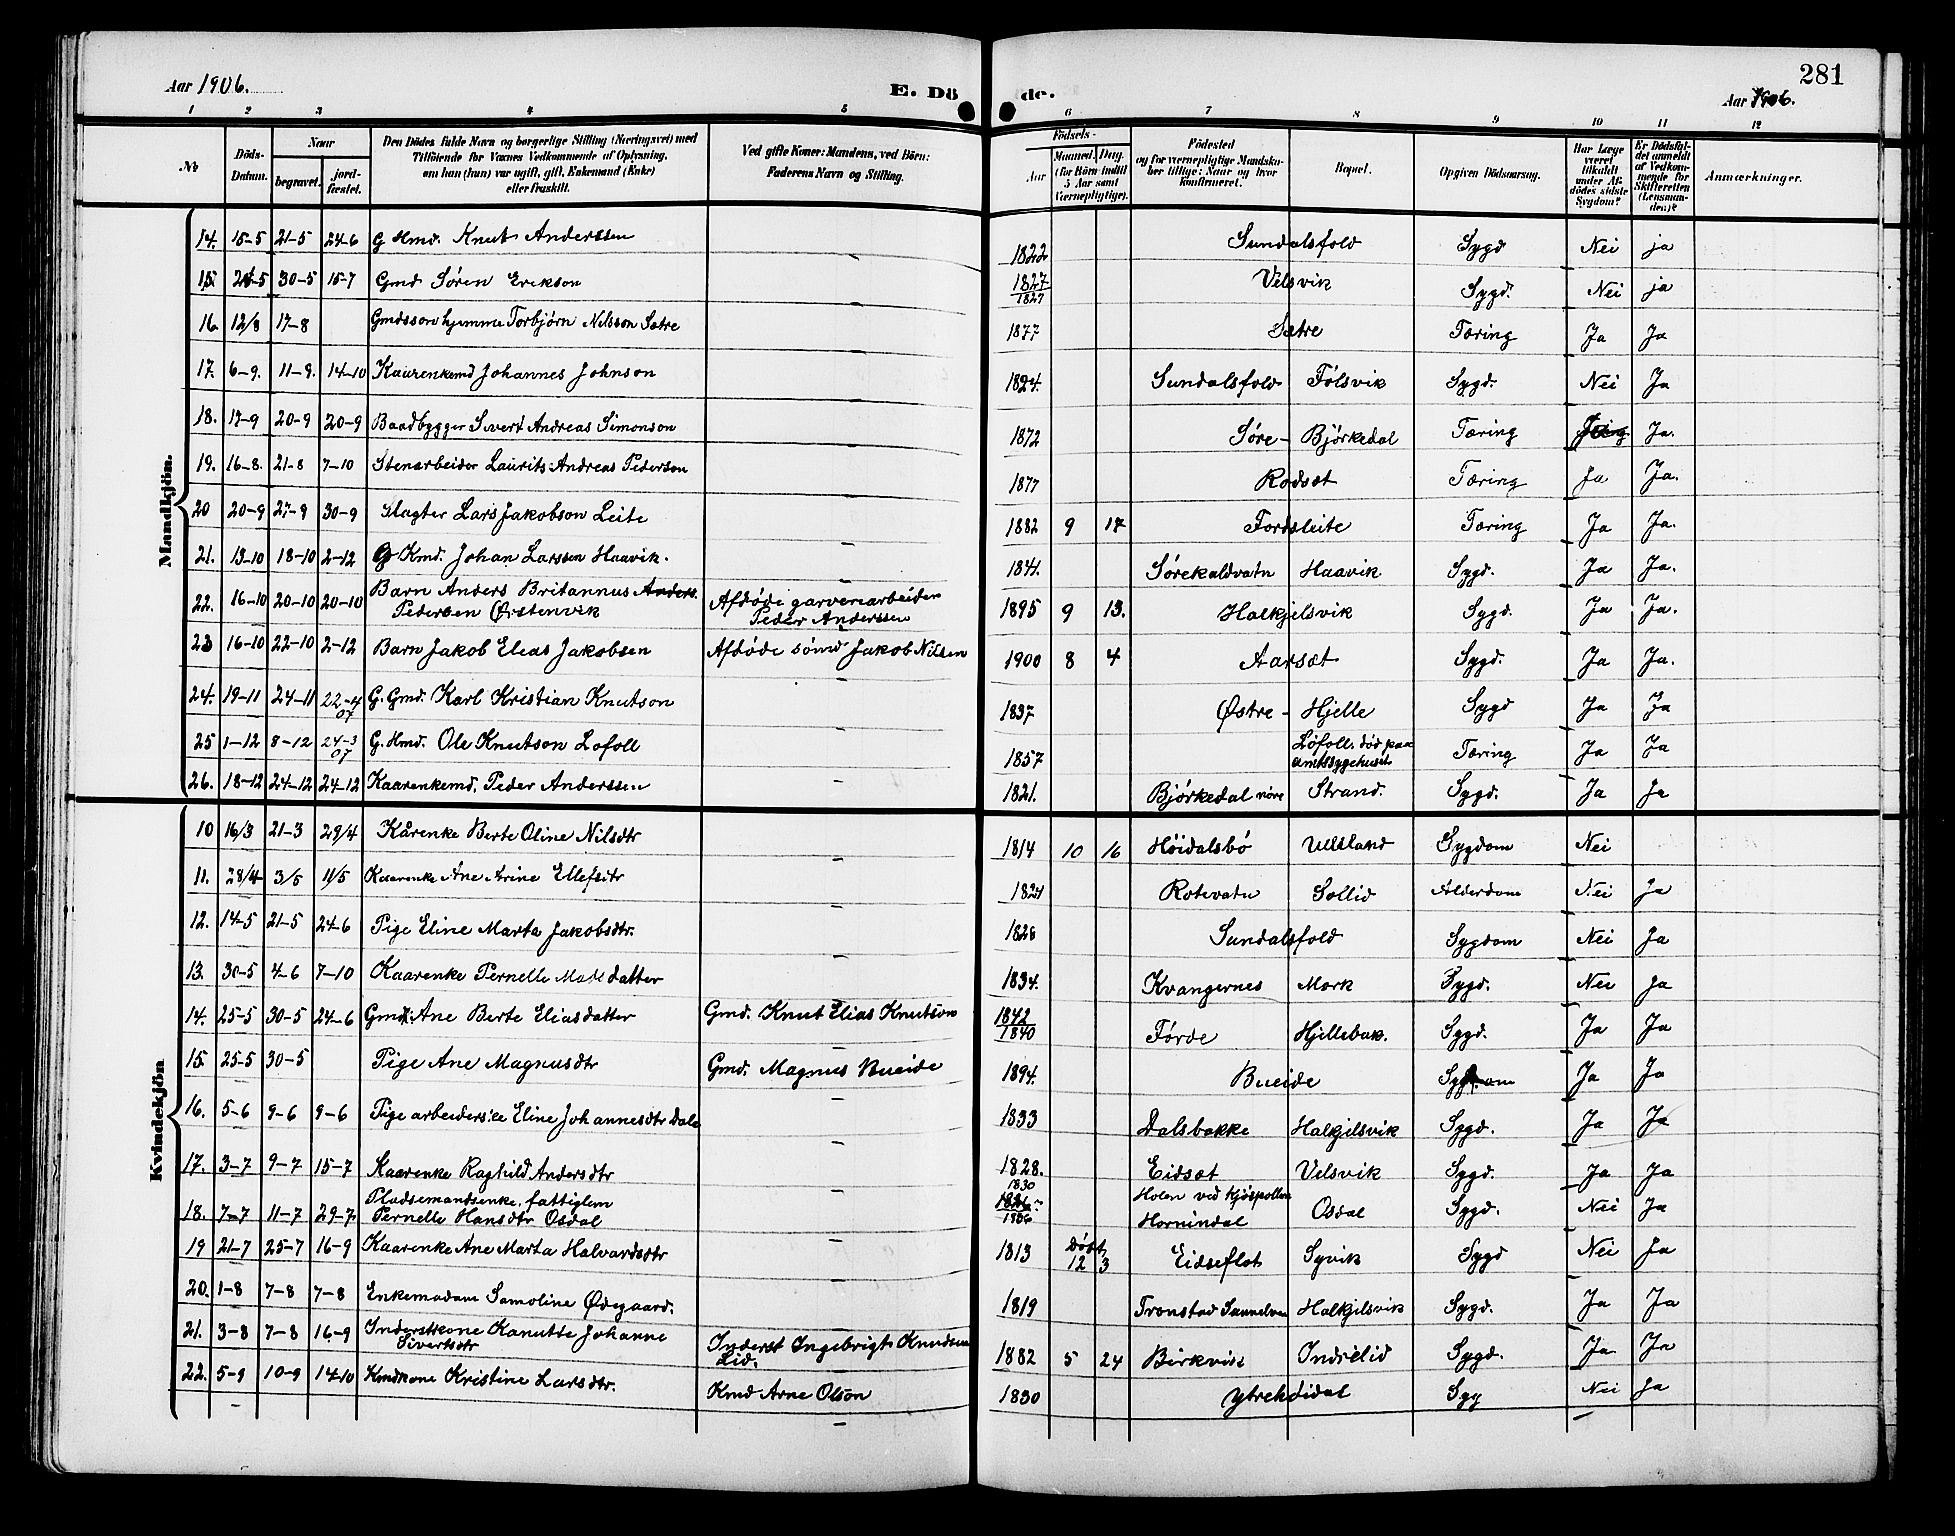 Aar 1906.
E. Döde.
281
Aar 1906.
1 2 3 4 5 6 7 8 9 10 11 12
No
Döds-Datum.
Naar
begravet.
jordfæstet.
Den Dödes fulde Navn og borgerlige Stilling (Næringsvei) med
Tilföiende for Voxnes Vedkommende af Oplysning,
om han (hun) var ugift, gift, Enkemand (Enke)
eller fraskilt.
Ved gifte Koner: Mandens, ved Börn:
Faderens Navn og Stilling.
Födsels-
Aar
Maaned. Dag.
(for Börn indtil
5 Aar samt
Værnepligtige).
Födested
og for værnepligtige Mandskaber
tillige: Naar og hvor
konfirmeret.
Bopæl.
Opgiven Dödsaarsag.
Har Læge
været
tilkaldt
under Afdödes
sidste
Sygdom?
Er Dödsfaldet
anmeldt
af Vedkommende
for
Skifteretten
(Lensmanden)?
Anmærkninger.
Mandkjön.
14. 15-5 21-5 24-6 G Hmd. Knut Anderssen 1822 Sundalsfold Sygd Nei ja
15. 24-5 30-5 15-7 Gmd Søren Erikson 1827 1827 Velsvik Sygd. Nei ja
16. 12/8 17-8 Gmdsson hjemme Torbjørn Nilsson Sætre 1877 Sætre Tæring Ja Ja
17. 6-9. 11-9. 14-10 Kaarenkemd Johannes Johnson 1824. Sundalsfold Følsvik Sygd. Nei Ja
18. 17-9 20-9 20-9 Baadbygger Sivert Andreas Simonson 1872 Søre- Bjørkedal Tæring Ja.
19. 16-8. 21-8 7-10 Stenarbeider Laurits Andreas Pederson 1877 Rodsæt Tæring Ja Ja.
20 20-9 27-9 30-9 Slagter Lars Jakobson Leite 1882 9 17 Fordsleite Tæring Ja Ja.
21. 13-10 18-10 2-12 G Kmd. Johan Larssen Haavik. 1841. Sørekaldvatn Haavik Sygd. Ja Ja.
22. 16-10 20-10 20-10 Barn Anders Britannus Anders.
Pedersen Ørstenvik Afdøde garveriarbeider
Peder Anderssen 1895 9 13. Halkjelsvik Sygd. Ja Ja.
23 16-10 22-10 2-12 Barn Jakob Elias Jakobsen Afdøde sømd Jakob Nilsen 1900 8 4 Aarsæt Sygd. Ja Ja.
24. 19-11 24-11 22-4 07 G. Gmd. Karl Kristian Knutson 1837 Østre- Hjelle Sygd Ja Ja
25 1-12 8-12 24-3 07 G. Hmd. Ole Knutson Lofoll 1857 Løfoll. død paa
amtssygehuset Tæring Ja Ja
26. 18-12 24-12 24-12 Kaarenkemd. Peder Anderssen 1821. Bjørkedal nøre Strand. Sygd. Ja Ja
Kvindekjön
10 16/3 21-3 29/4 Kårenke Berte Oline Nilsdtr 1814 10 16 Høidalsbø Ullaland Sygdom Nei
11. 28/4 3/5 11/5 Kaarenke Ane Arine Ellefsdtr 1821 Rotevatn Sollid Alderdom Nei Ja
12. 14-5 21-5 24-6 Pige Eline Marta Jakobsdtr. 1826 Sundalsfold Sygdom Nei Ja
13. 30-5 4-6 7-10 Kaarenke Pernelle Madsdatter 1834. Kvangernes Mork Sygd. Nei Ja
14. 25-5 30-5 24-6 Gmdk. Ane Berte Eliasdatter Gmd. Knut Elias Knutson 1842 1840 Førde Hjellebak. Sygd. Ja Ja
15. 25-5 30-5 Pige Ane Magnusdtr Gmd. Magnus Bueide 1894. Bueide Sygdom Ja Ja
16. 5-6 9-6 9-6 Pige arbeiderske Eline Johannesdtr Dale 1833 Dalsbakke Halkjelsvik Sygd. Ja Ja
17. 3-7 9-7 15-7 Kaarenke Raghild Andersdtr 1828. Eidsæt Velsvik Sygd. Ja Ja
18. 7-7 11-7 29-7 Pladsemandsenke, fattiglem
Pernelle Hansdtr Osdal 1830 1836 Holen ved Kjøspollen
Hornindal Osdal Sygd. Nei Ja
19 21-7 25-7 16-9 Kaarenke Ane Marta Halvardsdtr 1813 Døbt 12 3 Eidseflot Syvik Sygd Nei Ja
20. 1-8 7-8 7-8 Enkemadam Samoline Ødegaard. 1819 Tronstad Sunnelven Halkjelsvik Sygd. Ja Ja
21. 3-8 7-8 16-9 Inderstkone Kanutte Johanne
Sivertsdtr Inderst Ingebrigt Knudsen
Lid. 1882 5 24 Birkvist Indrelid Sygd. Ja Ja
22. 5-9 10-9 14-10 Kmdkone Kristine Larsdtr. Kmd Arne Olson 1830 Ytrehdidal Syg Nei Ja